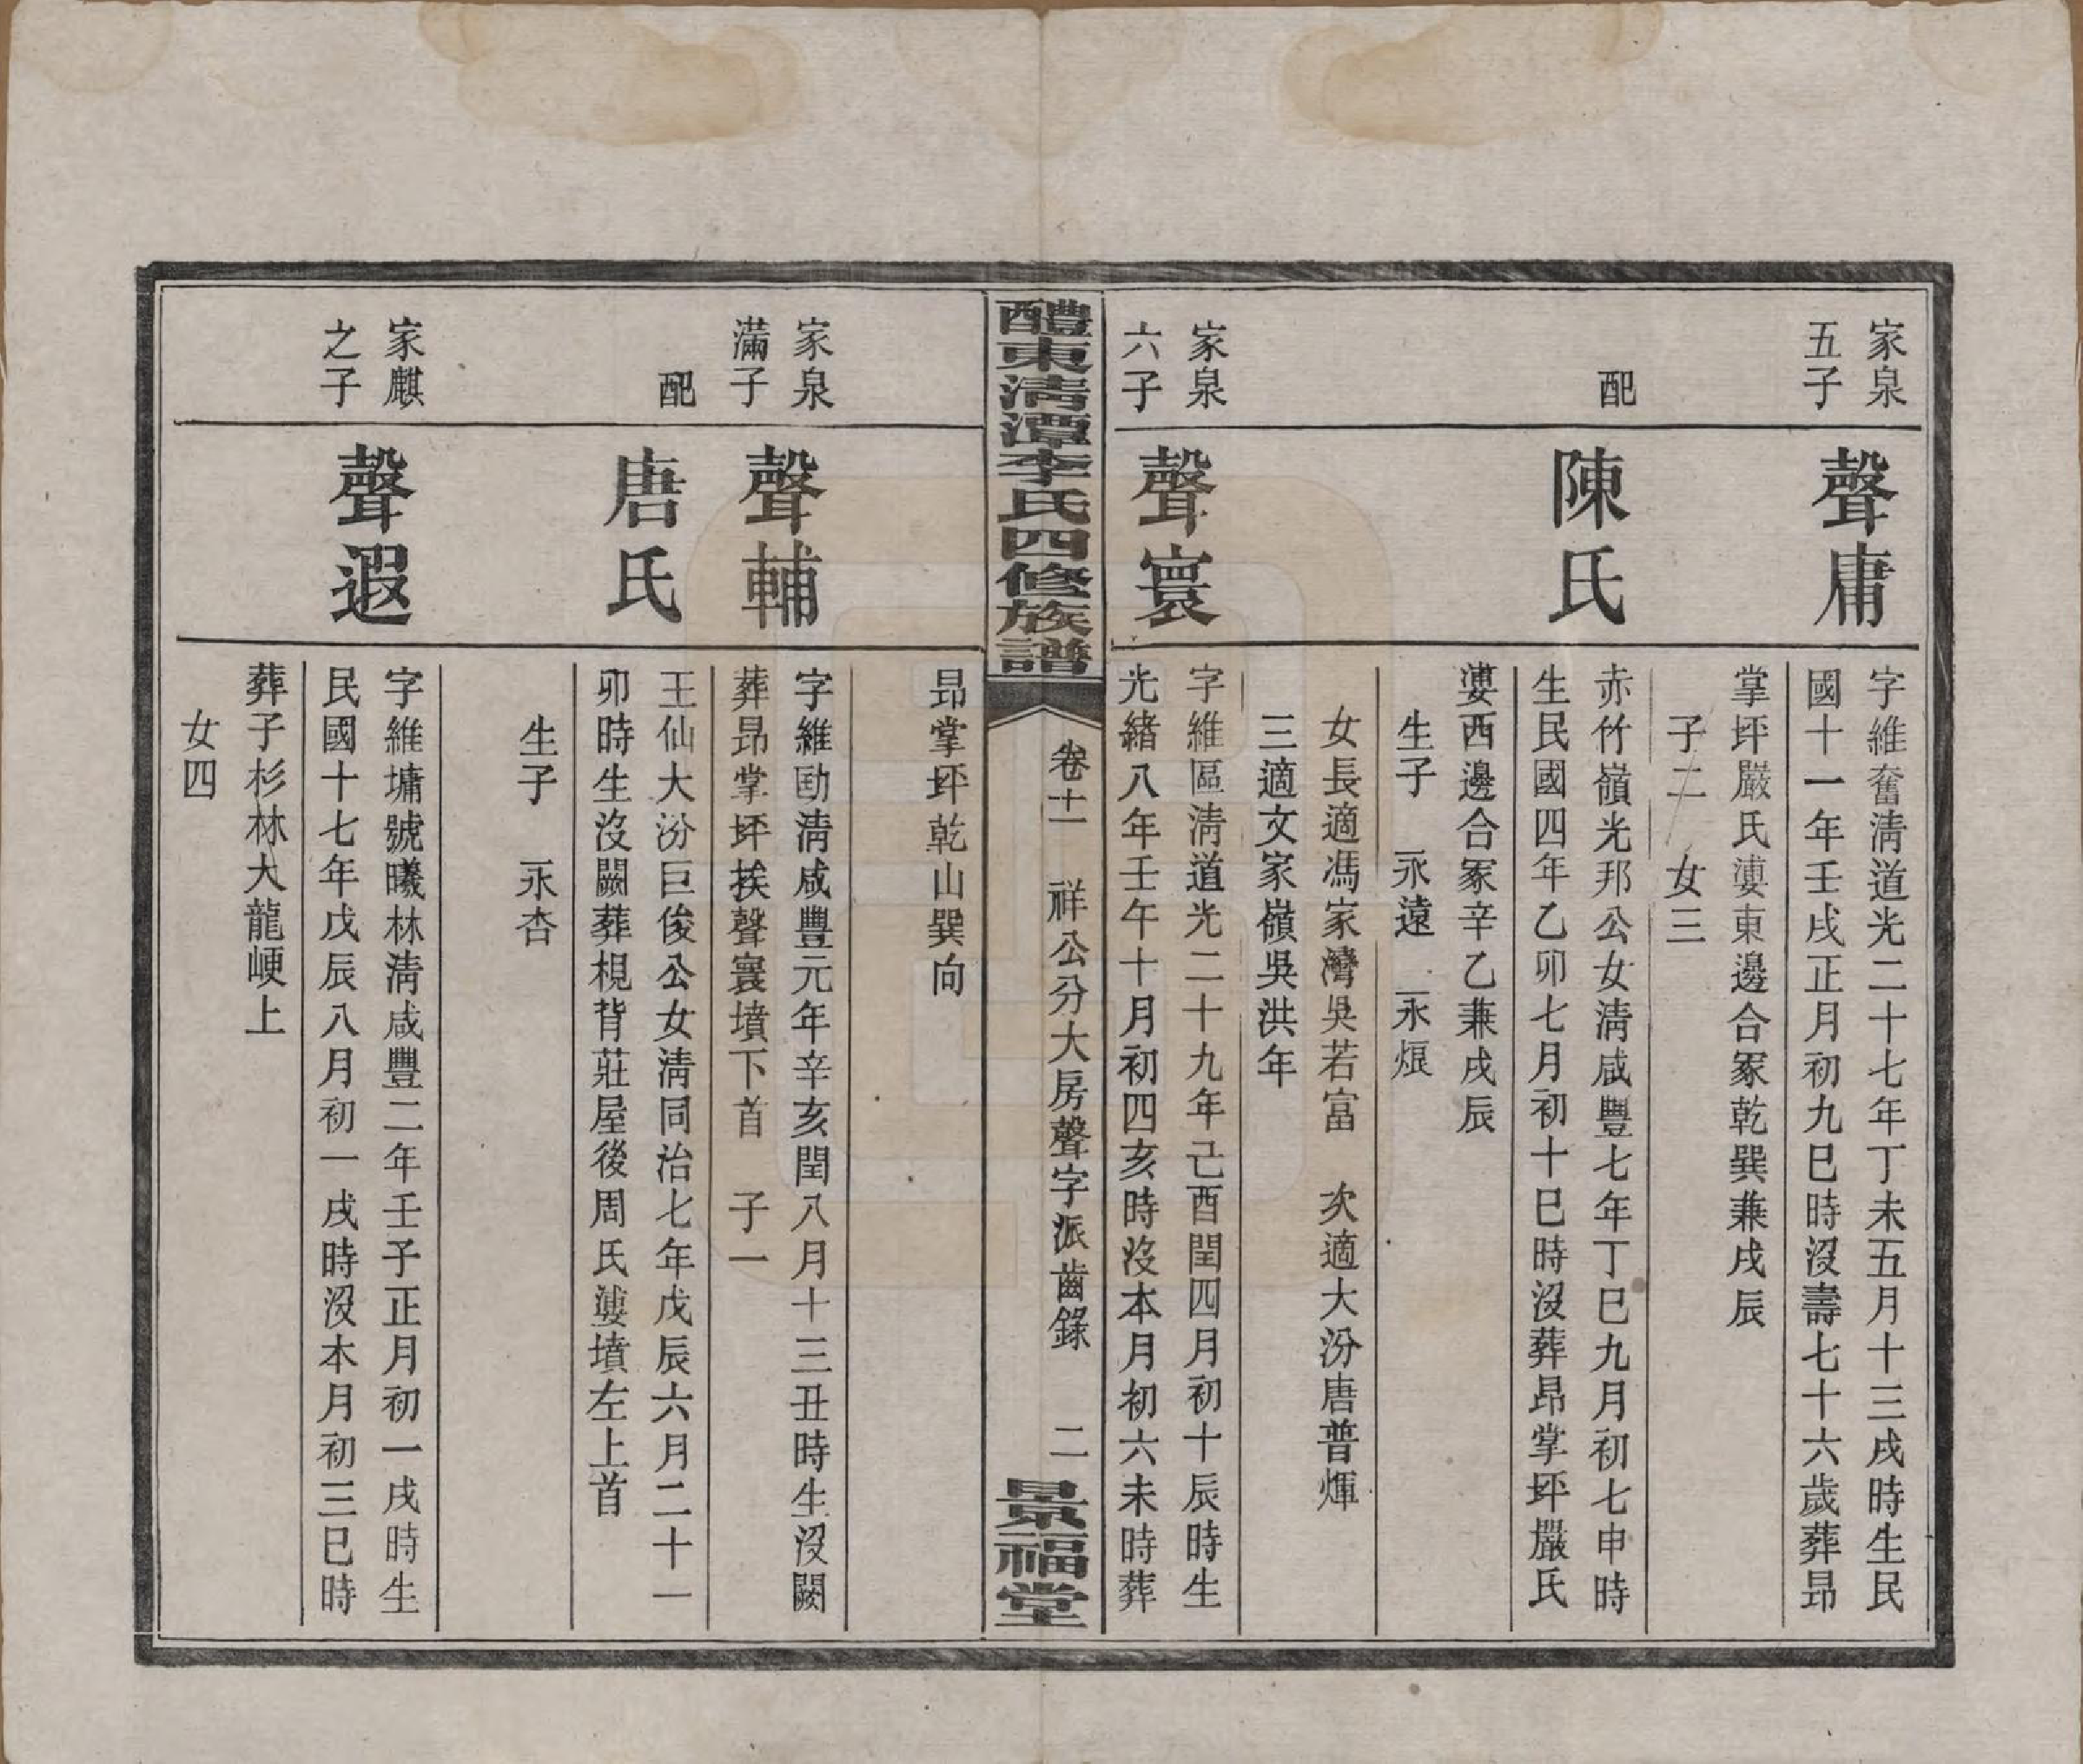 家泉
五子
聲庸
字維奮淸道光二十七年丁未五月十三戌時生民
國十一年壬戌正月初九巳時沒壽七十六歲葬昂
掌坪嚴氏漊東邊合冢乾巽兼戌辰
子二　女三
配
陳氏
赤竹嶺光邦公女淸咸豐七年丁巳九月初七申時
生民國四年乙卯七月初十巳時沒葬昂掌坪嚴氏
漊西邊合冢辛乙兼戌辰
生子　永遠　永烺
女長適馮家灣吳若富　次適大汾唐普煇
三適文家嶺吳洪年
家泉
六子
聲寰
字維區淸道光二十九年己酉閏四月初十辰時生
光緖八年壬午十月初四亥時沒本月初六未時葬
醴東淸潭李氏四修族譜
卷十一　祥公分大房聲字派齒錄　二
景福堂
昂掌坪乾山巽向
家泉
滿子
聲輔
字維勖淸咸豐元年辛亥閏八月十三丑時生沒闕
葬昂掌坪挨聲寰墳下首　子一
配
唐氏
王仙大汾巨俊公女淸同治七年戊辰六月二十一
卯時生沒闕葬梘背莊屋後周氏漊墳左上首
生子　永杏
家麒
之子
聲遐
字維墉號曦林淸咸豐二年壬子正月初一戌時生
民國十七年戊辰八月初一戌時沒本月初三巳時
葬子杉林大龍峺上
女四